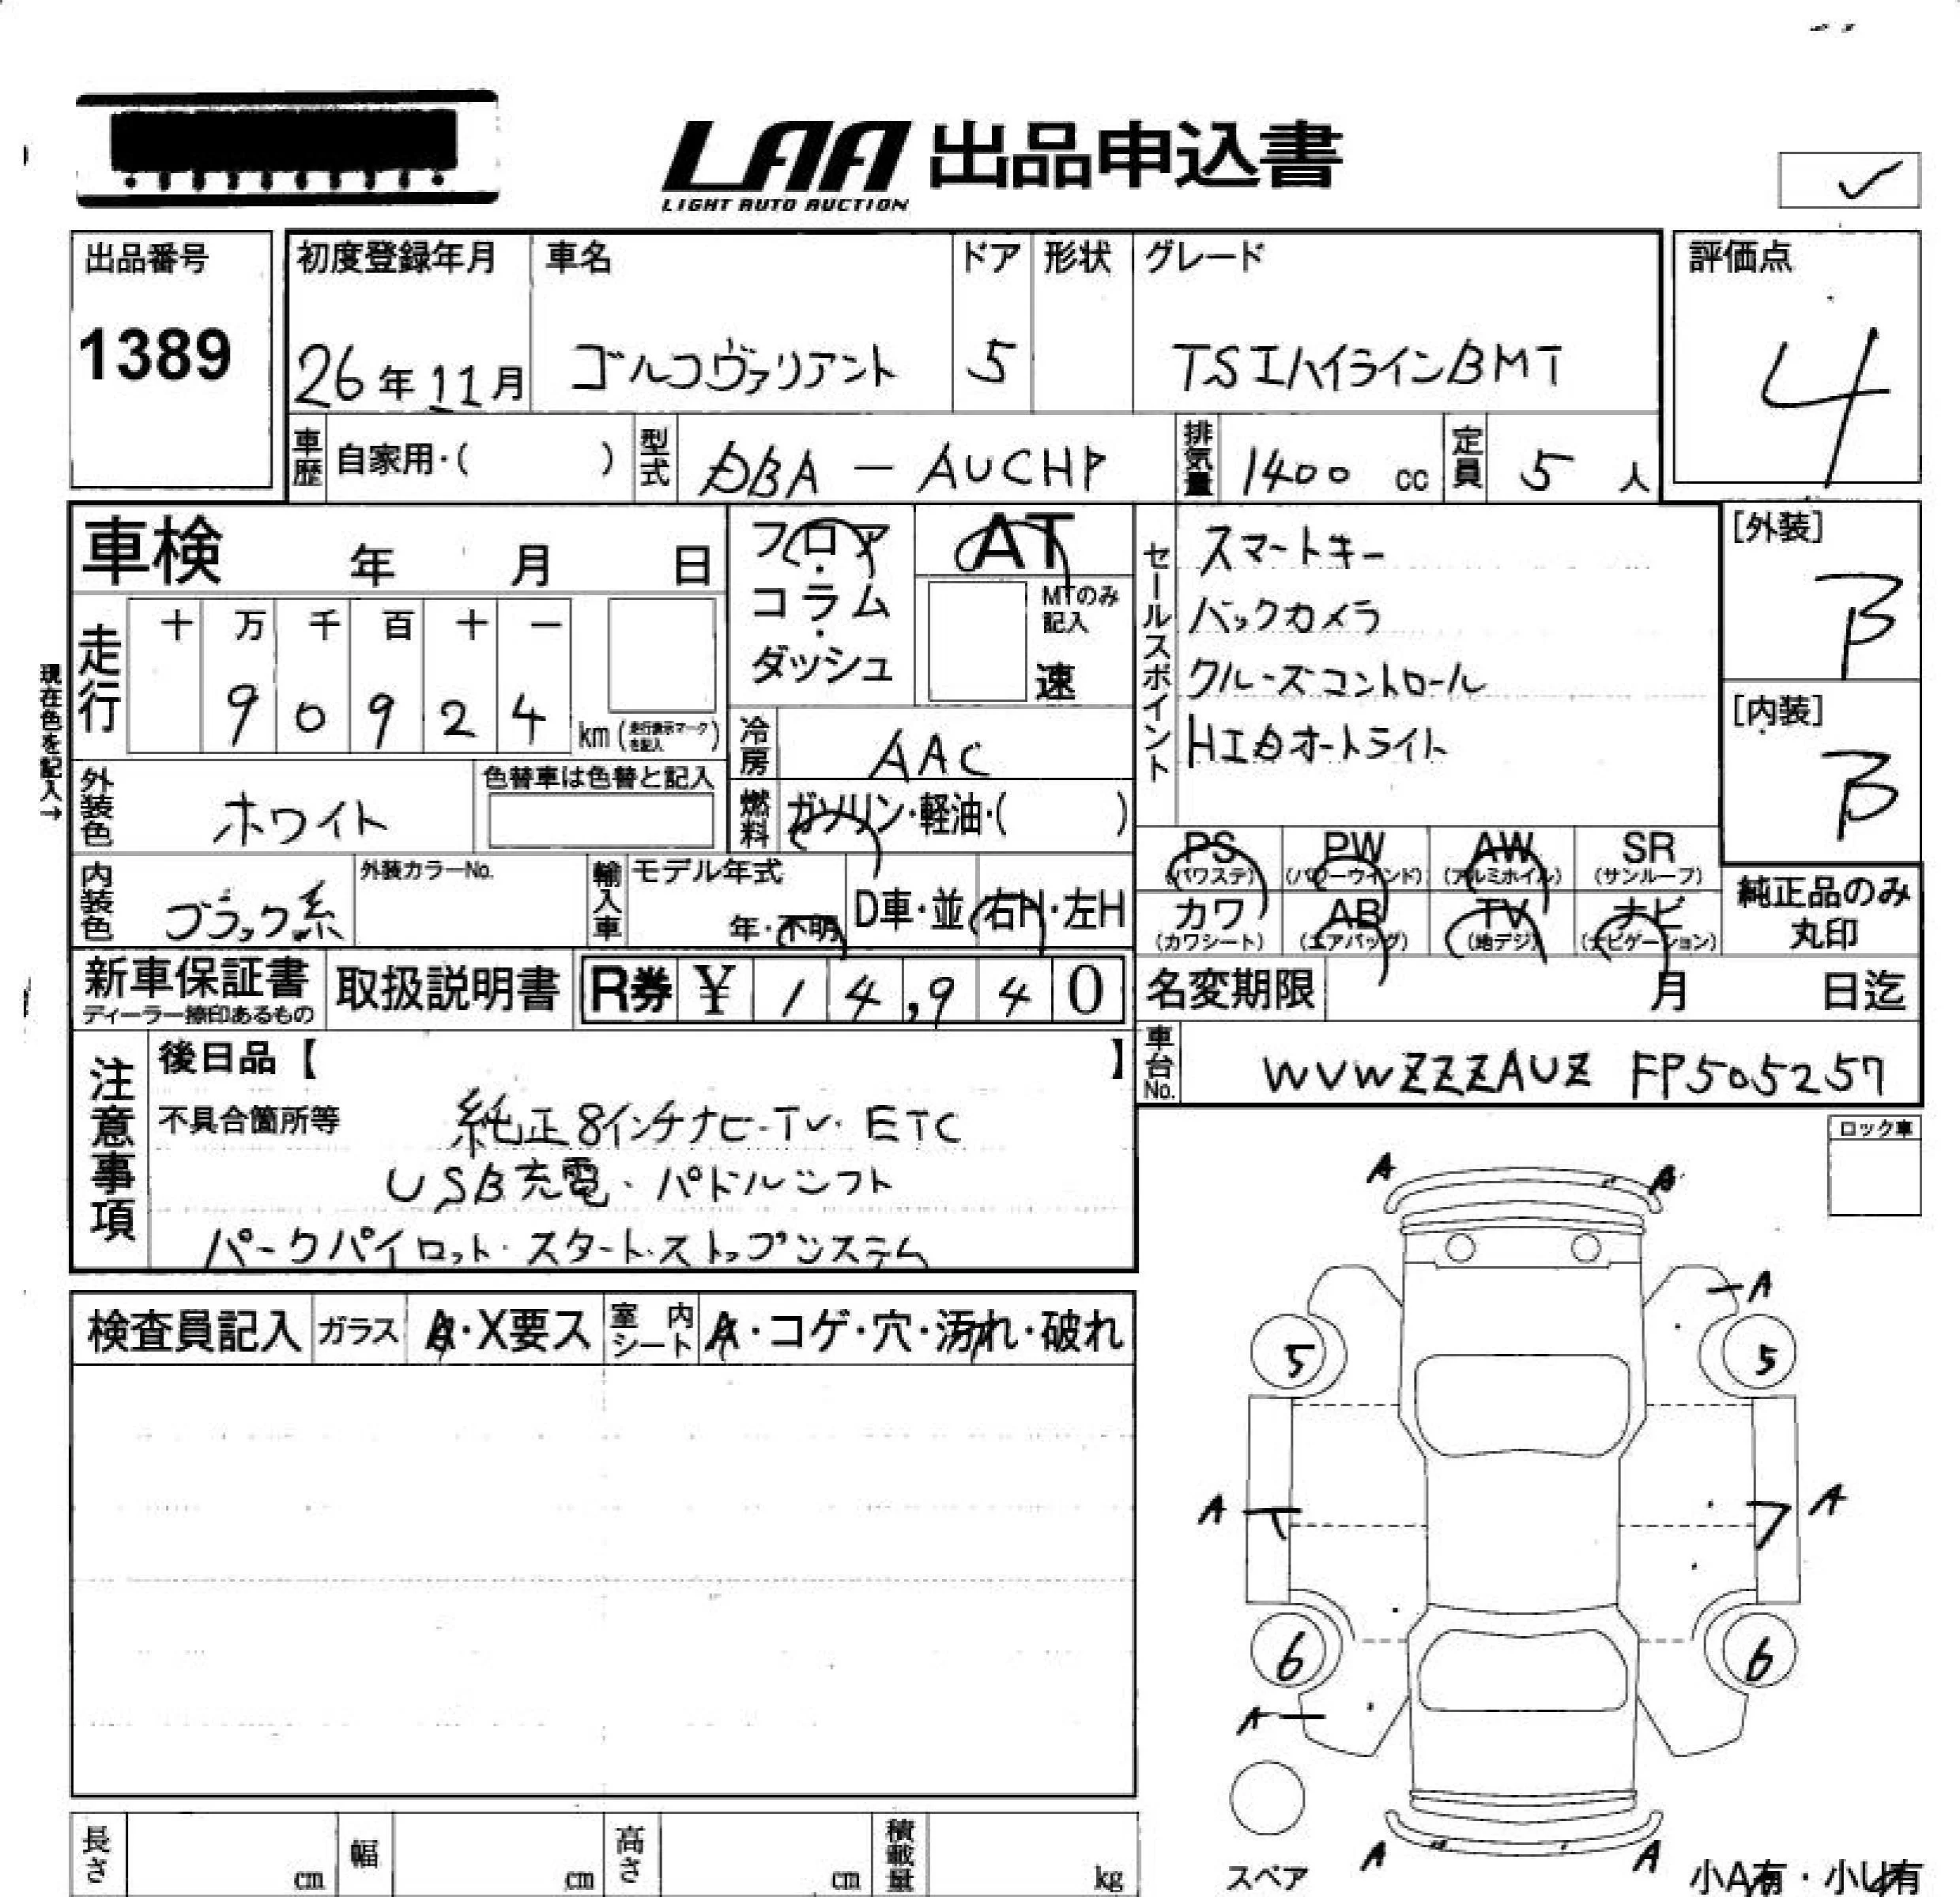 LAA 出品申込書
LIGHT AUTO AUCTION
出品番号
1389
初度登録年月
26年11月
車名
ゴルフヴァリアント
ドア
5
形状
グレード
TSIハイラインBMT
評価点
4
車歴 自家用・( )
型式 DBA - AUCHP
排気量 1400 cc
定員 5 人
車検 年 月 日
フロア・コラム・ダッシュ
AT
MTのみ記入
速
セールスポイント
スマートキー
バックカメラ
クルーズコントロール
HIDオートライト
[外装]
B
[内装]
B
現在色を記入→
走行
十 万 千 百 十 一
9 0 9 2 4 km (走行表示マークを記入)
冷房 AAC
燃料 ガソリン・軽油・( )
外装色 ホワイト
色替車は色替と記入
内装色 ブラック系
外装カラーNo.
輸入車
モデル年式
年・不明
D車・並 右H・左H
PS (パワステ)
PW (パワーウインド)
AW (アルミホイル)
SR (サンルーフ)
カワ (カワシート)
AB (エアバッグ)
TV (地デジ)
ナビ (ナビゲーション)
純正品のみ
丸印
新車保証書
ディーラー捺印あるもの
取扱説明書
R券 ¥ 14,940
名変期限 月 日迄
車台No. WVWZZZAUZ FP505257
注意事項
後日品【 】
不具合箇所等
純正8インチナビ・TV・ETC
USB充電・パドルシフト
パークパイロット・スタート・ストップシステム
ロック車
検査員記入
ガラス A・X要ス
室内シート A・コゲ・穴・汚れ・破れ
A A
A
5 5
A A
6 6
A
スペア
A A
小A有・小U有
長さ cm
幅 cm
高さ cm
積載量 kg